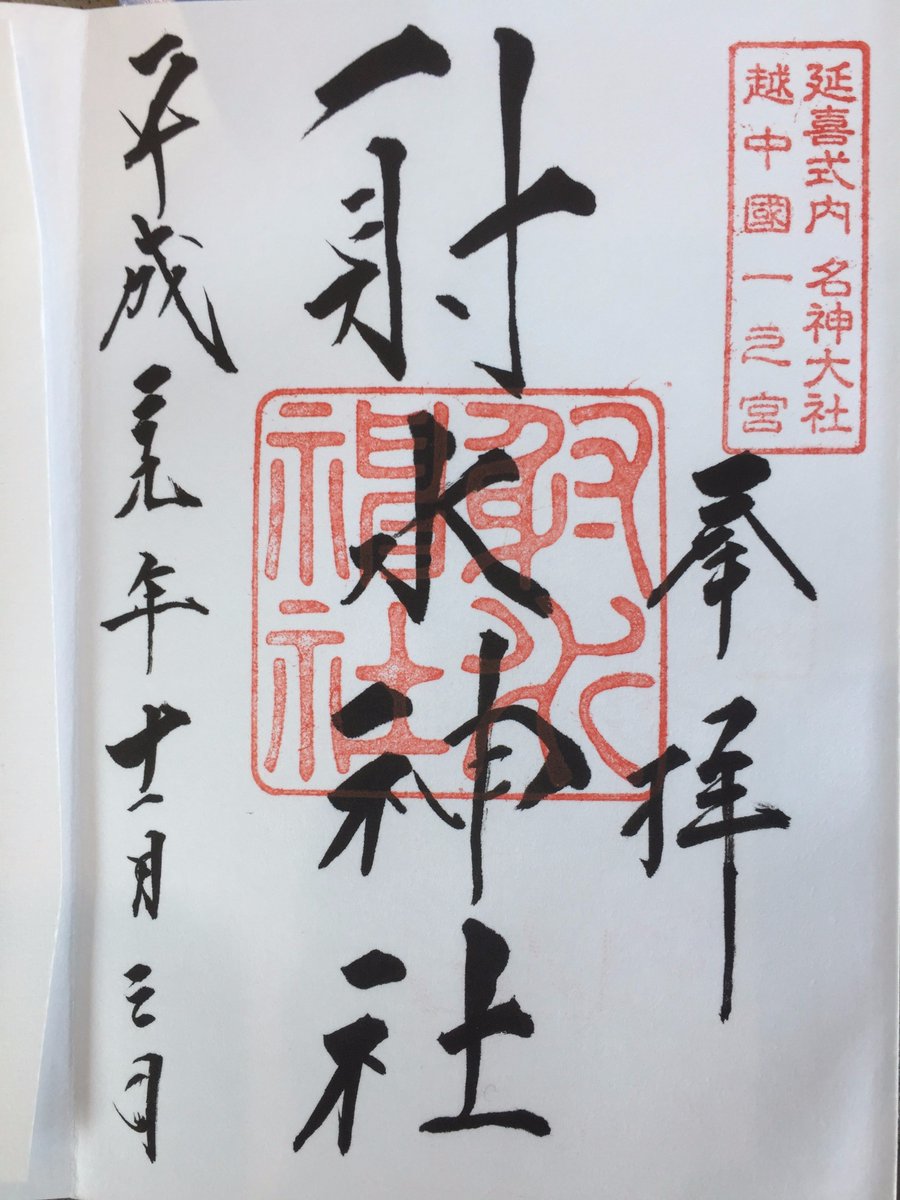 延喜式内 名神大社
越中國一之宮
奉拝
射水神社
射水
神社
平成二九年十一月三日